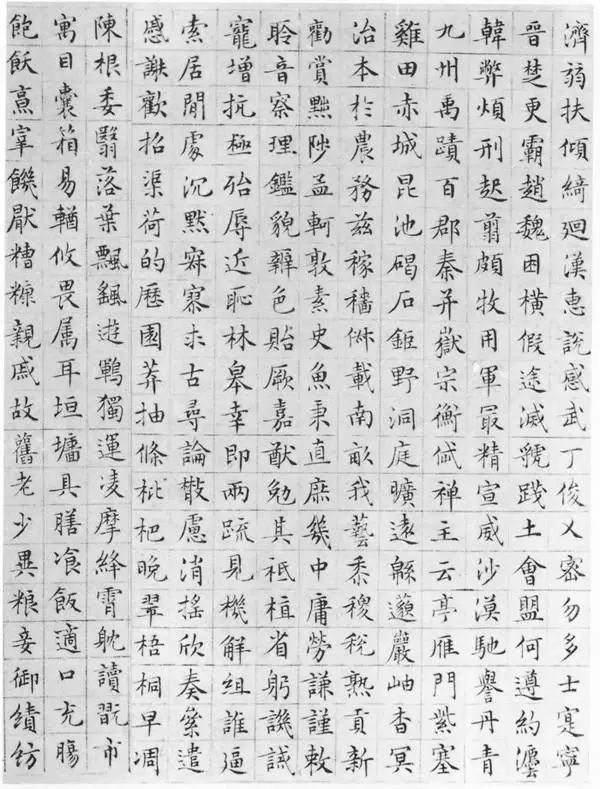 濟弱扶傾綺迴漢惠說感武丁俊乂密勿多士寔寧
晉楚更霸趙魏困橫假途滅虢踐土會盟何遵約灋
韓弊煩刑起翦頗牧用軍最精宣威沙漠馳譽丹青
九州禹蹟百郡秦并嶽宗衡岱禪主云亭雁門紫塞
雞田赤城昆池碣石鉅野洞庭曠遠緜邈巖岫杳冥
治本於農務茲稼穡俶載南畝我藝黍稷稅熟貢新
勸賞黜陟孟軻敦素史魚秉直庶幾中庸勞謙謹敕
聆音察理鑑貌辨色貽厥嘉猷勉其祗植省躬譏誡
寵增抗極殆辱近恥林皋幸即兩疏見機解組誰逼
索居閒處沉默寂寥求古尋論散慮消搖欣奏累遣
慼謝歡招渠荷的歷園莽抽條枇杷晚翠梧桐早凋
陳根委翳落葉飄颻遊鵾獨運凌摩絳霄耽讀翫市
寓目囊箱易輶攸畏属耳垣墻具膳飡飯適口充腸
飽飫烹宰饑厭糟糠親戚故舊老少異糧妾御績紡